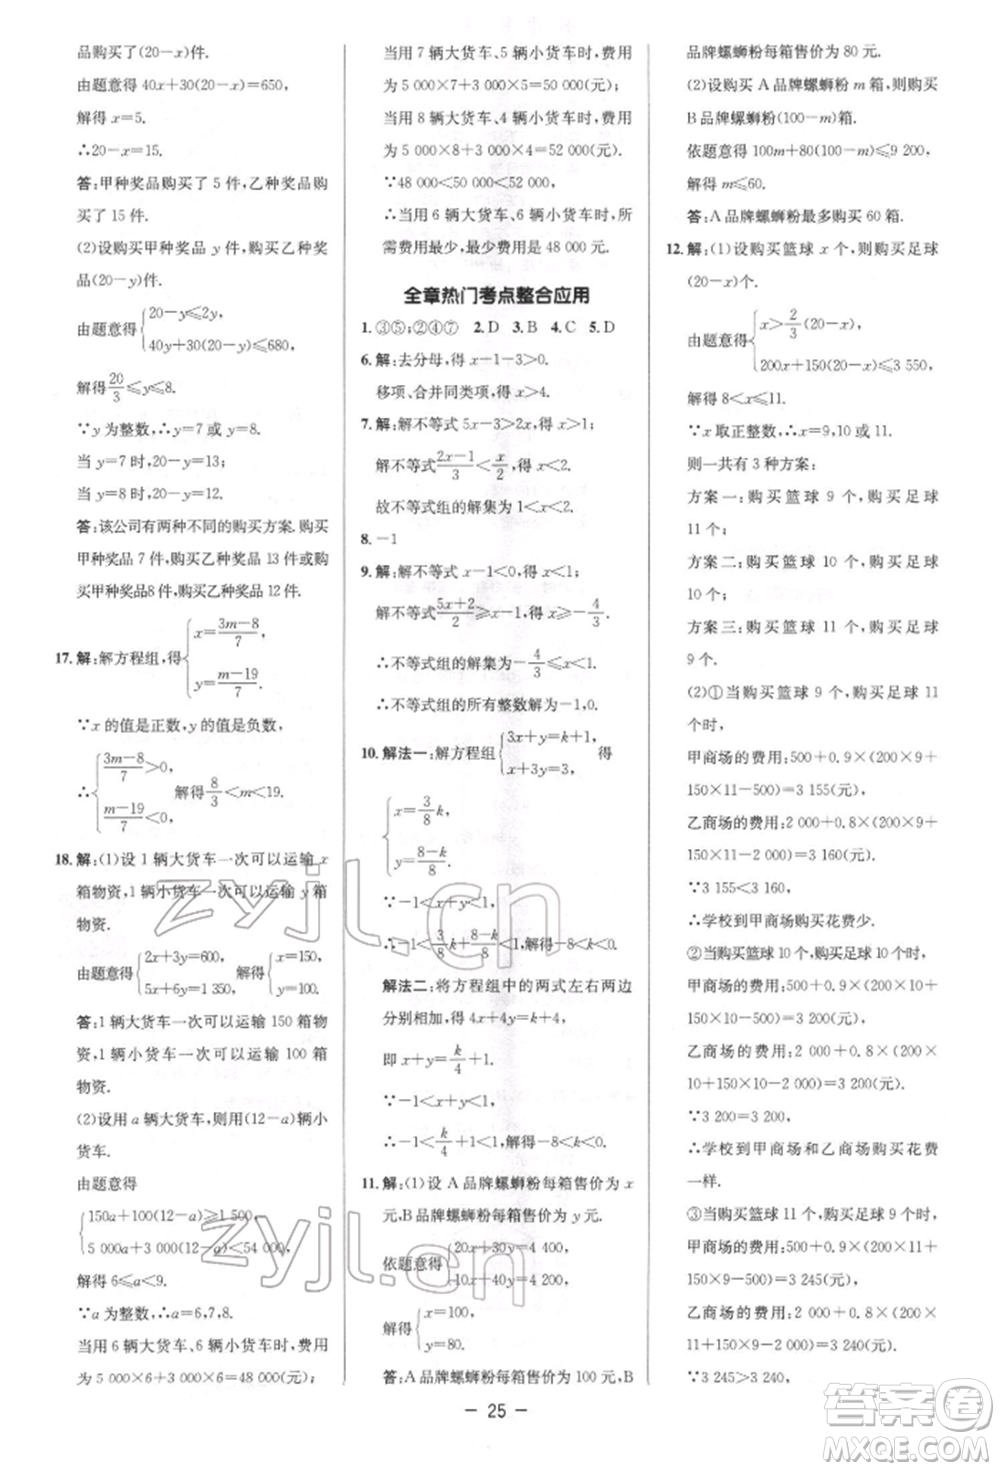 品购买了(20-x)件.
由题意得 40x+30(20-x)=650,
解得 x=5.
∴20-x=15.
答:甲种奖品购买了 5 件,乙种奖品购
买了 15 件.
(2)设购买甲种奖品 y 件,则购买乙种
奖品(20-y)件.
由题意得{20-y≤2y,
40y+30(20-y)≤680,
解得20/3≤y≤8.
∵y 为整数,∴y=7 或 y=8.
当 y=7 时,20-y=13;
当 y=8 时,20-y=12.
答:该公司有两种不同的购买方案.购买
甲种奖品 7 件,购买乙种奖品 13 件或购买
甲种奖品8 件,购买乙种奖品 12 件.
17.解:解方程组,得{x=(3m-8)/7,
y=(m-19)/7.
∵x 的值是正数,y 的值是负数,
∴{(3m-8)/7>0,
(m-19)/7<0,解得8/3<m<19.
18.解:(1)设 1 辆大货车一次可以运输 x
箱物资,1 辆小货车一次可以运输 y 箱
物资.
由题意得{2x+3y=600,
5x+6y=1 350,解得{x=150,
y=100.
答:1 辆大货车一次可以运输 150 箱物
资,1 辆小货车一次可以运输 100 箱
物资.
(2)设用 a 辆大货车,则用(12-a)辆小
货车.
由题意得
{150a+100(12-a)≥1 500,
5 000a+3 000(12-a)<54 000,
解得 6≤a<9.
∵a 为整数,∴a=6,7,8.
当用 6 辆大货车、6 辆小货车时,费用
为 5 000×6+3 000×6=48 000(元);
当用 7 辆大货车、5 辆小货车时,费用为
5 000×7+3 000×5=50 000(元);
当用 8 辆大货车、4 辆小货车时,费用
为 5 000×8+3 000×4=52 000(元).
∵48 000<50 000<52 000,
∴当用 6 辆大货车、6 辆小货车时,所
需费用最少,最少费用是 48 000 元.
全章热门考点整合应用
1.③⑤;②④⑦ 2.D 3.B 4.C 5.D
6.解:去分母,得 x-1-3>0.
移项、合并同类项,得 x>4.
7.解:解不等式 5x-3>2x,得 x>1;
解不等式(2x-1)/3<x/2,得 x<2.
故不等式组的解集为 1<x<2.
8.-1
9.解:解不等式 x-1<0,得 x<1;
解不等式(5x+2)/2≥x-1,得 x≥-4/3.
∴不等式组的解集为-4/3≤x<1.
∴不等式组的所有整数解为-1,0.
10.解法一:解方程组{3x+y=k+1,
x+3y=3,得
{x=3/8k,
y=(8-k)/8.
∵-1<x+y<1,
∴-1<3/8k+(8-k)/8<1,解得-8<k<0.
解法二:将方程组中的两式左右两边
分别相加,得 4x+4y=k+4,
即 x+y=k/4+1.
∵-1<x+y<1,
∴-1<k/4+1<1,解得-8<k<0.
11.解:(1)设 A 品牌螺蛳粉每箱售价为 x
元,B 品牌螺蛳粉每箱售价为 y 元.
依题意得{20x+30y=4 400,
10x+40y=4 200,
解得{x=100,
y=80.
答:A 品牌螺蛳粉每箱售价为 100 元,B
品牌螺蛳粉每箱售价为 80 元.
(2)设购买 A 品牌螺蛳粉 m 箱,则购买
B 品牌螺蛳粉(100-m)箱.
依题意得 100m+80(100-m)≤9 200,
解得 m≤60.
答:A 品牌螺蛳粉最多购买 60 箱.
12.解:(1)设购买篮球 x 个,则购买足球
(20-x)个.
由题意得{x>2/3(20-x),
200x+150(20-x)≤3 550,
解得 8<x≤11.
∵x 取正整数,∴x=9,10 或 11.
则一共有 3 种方案:
方案一:购买篮球 9 个,购买足球
11 个;
方案二:购买篮球 10 个,购买足球
10 个;
方案三:购买篮球 11 个,购买足球
9 个.
(2)①当购买篮球 9 个,购买足球 11
个时,
甲商场的费用:500+0.9×(200×9+
150×11-500)=3 155(元),
乙商场的费用:2 000+0.8×(200×
9+150×11-2 000)=3 160(元),
∵3 155<3 160,
∴学校到甲商场购买花费少.
②当购买篮球 10 个,购买足球 10 个时,
甲商场的费用:500+0.9×(200×10+
150×10-500)=3 200(元),
乙商场的费用:2 000+0.8×(200×
10+150×10-2 000)=3 200(元),
∵3 200=3 200,
∴学校到甲商场和乙商场购买花费
一样.
③当购买篮球 11 个,购买足球 9 个时,
甲商场的费用:500+0.9×(200×11+
150×9-500)=3 245(元),
乙商场的费用:2 000+0.8×(200×
11+150×9-2 000)=3 240(元),
∵3 245>3 240,
- 25 -
zyjl.cn
zyjl.cn
答案圈
MXQE.COM